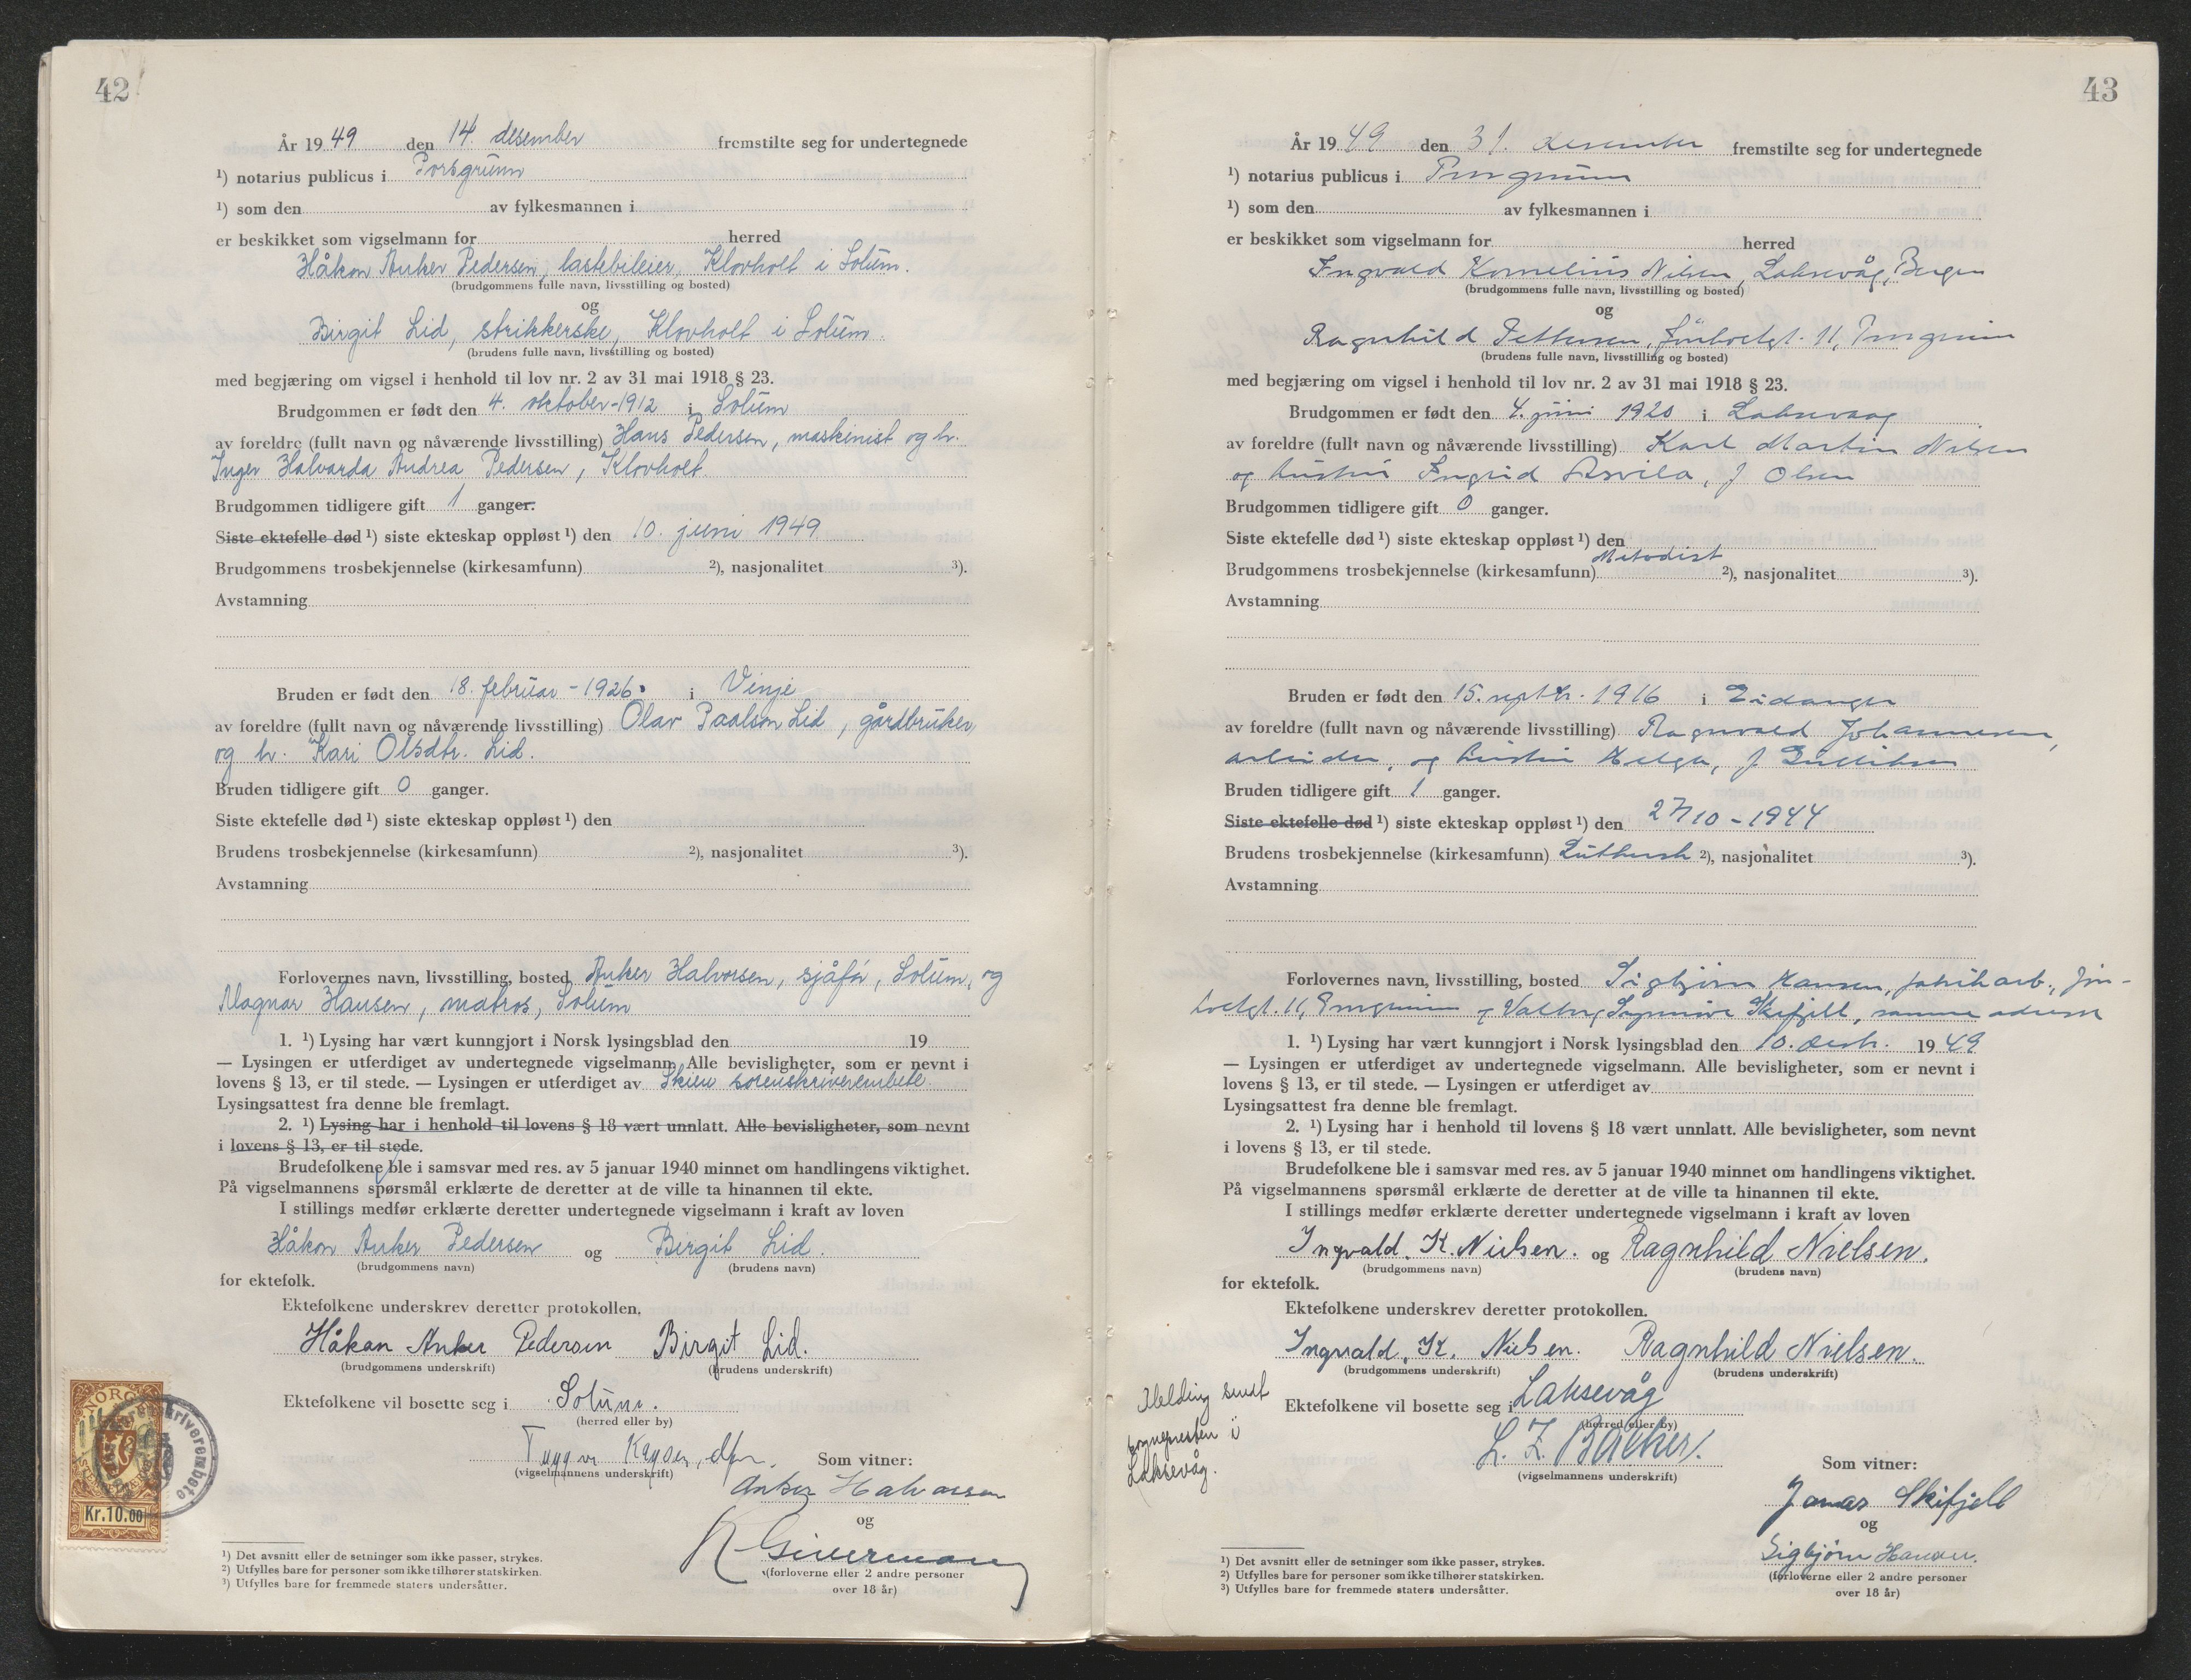 42
År 1949 den 14. desember fremstilte seg for undertegnede
¹) notarius publicus i Porsgrunn
¹) som den av fylkesmannen i
er beskikket som vigselmann for herred
Håkon Anker Pedersen, lastebileier, Klovholt i Solum.
(brudgommens fulle navn, livsstilling og bosted)
og
Birgit Lid, strikkerske, Klovholt i Solum.
(brudens fulle navn, livsstilling og bosted)
med begjæring om vigsel i henhold til lov nr. 2 av 31 mai 1918 § 23.
Brudgommen er født den 4. oktober-1912 i Solum
av foreldre (fullt navn og nåværende livsstilling) Hans Pedersen, maskinist og h.
Inger Halvarda Andrea Pedersen, Klovholt.
Brudgommen tidligere gift 1 ganger.
Siste ektefelle død ¹) siste ekteskap oppløst ¹) den 10. juni 1949
Brudgommens trosbekjennelse (kirkesamfunn) ²), nasjonalitet ³).
Avstamning
Bruden er født den 18. februar - 1926. i Vinje
av foreldre (fullt navn og nåværende livsstilling) Olav Paalson Lid, gårdbruker,
og h. Kari Olsdtr. Lid.
Bruden tidligere gift 0 ganger.
Siste ektefelle død ¹) siste ekteskap oppløst ¹) den
Brudens trosbekjennelse (kirkesamfunn) ²), nasjonalitet ³).
Avstamning
Forlovernes navn, livsstilling, bosted Anker Halvorsen, sjåfør, Solum, og
Magnar Hansen, matros, Solum
1. ¹) Lysing har vært kunngjort i Norsk lysingsblad den 19
— Lysingen er utferdiget av undertegnede vigselmann. Alle bevisligheter, som er nevnt i
lovens § 13, er til stede. — Lysingen er utferdiget av Skien sorenskriverembete.
Lysingsattest fra denne ble fremlagt.
2. ¹) Lysing har i henhold til lovens § 18 vært unnlatt. Alle bevisligheter, som nevnt
i lovens § 13, er til stede.
Brudefolkene ble i samsvar med res. av 5 januar 1940 minnet om handlingens viktighet.
På vigselmannens spørsmål erklærte de deretter at de ville ta hinannen til ekte.
I stillings medfør erklærte deretter undertegnede vigselmann i kraft av loven
Håkon Anker Pedersen og Birgit Lid.
(brudgommens navn) (brudens navn)
for ektefolk.
Ektefolkene underskrev deretter protokollen.
Håkon Anker Pedersen Birgit Lid.
(brudgommens underskrift) (brudens underskrift)
Ektefolkene vil bosette seg i Solum.
(herred eller by)
Kayser, dfm.
(vigselmannens underskrift)
Som vitner:
Anker Halvorsen
og
(forloverne eller 2 andre personer
over 18 år)
NORGE
Kr.10.00
¹) Det avsnitt eller de setninger som ikke passer, strykes.
²) Utfylles bare for personer som ikke tilhører statskirken.
³) Utfylles bare for fremmede staters undersåtter.
43
År 1949 den 31. desember fremstilte seg for undertegnede
¹) notarius publicus i Porsgrunn
¹) som den av fylkesmannen i
er beskikket som vigselmann for herred
Ingvald Kornelius Nilsen, Laksevåg, Bergen
(brudgommens fulle navn, livsstilling og bosted)
og
Ragnhild Pettersen, 11, Porsgrunn
(brudens fulle navn, livsstilling og bosted)
med begjæring om vigsel i henhold til lov nr. 2 av 31 mai 1918 § 23.
Brudgommen er født den 4. juni 1920 i Laksevaag
av foreldre (fullt navn og nåværende livsstilling) Karl Martin Nilsen
og hustru Ingrid, f Olsen
Brudgommen tidligere gift 0 ganger.
Siste ektefelle død ¹) siste ekteskap oppløst ¹) den
Brudgommens trosbekjennelse (kirkesamfunn) Metodist ²), nasjonalitet ³).
Avstamning
Bruden er født den 15. septbr. 1916 i Eidanger
av foreldre (fullt navn og nåværende livsstilling) Ragnvald Johannesen,
arbeider, og hustru Helga, f Gulliksen
Bruden tidligere gift 1 ganger.
Siste ektefelle død ¹) siste ekteskap oppløst ¹) den 27/10 - 1944
Brudens trosbekjennelse (kirkesamfunn) Luthersk ²), nasjonalitet ³).
Avstamning
Forlovernes navn, livsstilling, bosted Sigbjørn Hansen, fabrikarb.,
11, Porsgrunn og Valborg Skifjell, samme adresse
1. ¹) Lysing har vært kunngjort i Norsk lysingsblad den 10. desb. 1949
— Lysingen er utferdiget av undertegnede vigselmann. Alle bevisligheter, som er nevnt i
lovens § 13, er til stede. — Lysingen er utferdiget av
Lysingsattest fra denne ble fremlagt.
2. ¹) Lysing har i henhold til lovens § 18 vært unnlatt. Alle bevisligheter, som nevnt
i lovens § 13, er til stede.
Brudefolkene ble i samsvar med res. av 5 januar 1940 minnet om handlingens viktighet.
På vigselmannens spørsmål erklærte de deretter at de ville ta hinannen til ekte.
I stillings medfør erklærte deretter undertegnede vigselmann i kraft av loven
Ingvald. K. Nielsen. og Ragnhild Nielsen.
(brudgommens navn) (brudens navn)
for ektefolk.
Ektefolkene underskrev deretter protokollen.
Ingvald. K. Nielsen. Ragnhild Nielsen.
(brudgommens underskrift) (brudens underskrift)
Melding sendt
sognepresten i
Laksevåg.
Ektefolkene vil bosette seg i Laksevåg
(herred eller by)
L. Z. Backer.
(vigselmannens underskrift)
Som vitner:
Jonas Skifjell
og
Sigbjørn Hansen.
(forloverne eller 2 andre personer
over 18 år)
¹) Det avsnitt eller de setninger som ikke passer, strykes.
²) Utfylles bare for personer som ikke tilhører statskirken.
³) Utfylles bare for fremmede staters undersåtter.